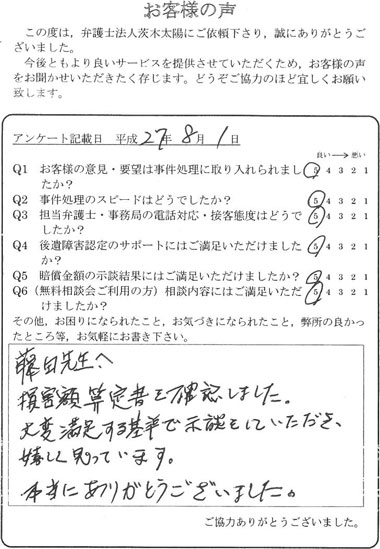 お客様の声
この度は，弁護士法人茨木太陽にご依頼下さり，誠にありがとうご
ざいました。
今後ともより良いサービスを提供させていただくため，お客様の声
をお聞かせいただきたく存じます。どうぞご協力のほど宜しくお願い
致します。
アンケート記載日 平成27年8月1日
良い → 悪い
Q1 お客様の意見・要望は事件処理に取り入れられまし 5 4 3 2 1
たか？
Q2 事件処理のスピードはどうでしたか？ 5 4 3 2 1
Q3 担当弁護士・事務局の電話対応・接客態度はどうで 5 4 3 2 1
したか？
Q4 後遺障害認定のサポートにはご満足いただけました 5 4 3 2 1
か？
Q5 賠償金額の示談結果にはご満足いただけましたか？ 5 4 3 2 1
Q6（無料相談会ご利用の方）相談内容にはご満足いただ 5 4 3 2 1
けましたか？
その他，お困りになられたこと，お気づきになられたこと，弊所の良かっ
たところ等，お気軽にお書き下さい。
藤田先生へ
損害額算定書を確認しました。
大変満足する基準で示談をしていただき、
嬉しく思っています。
本当にありがとうございました。
ご協力ありがとうございました。